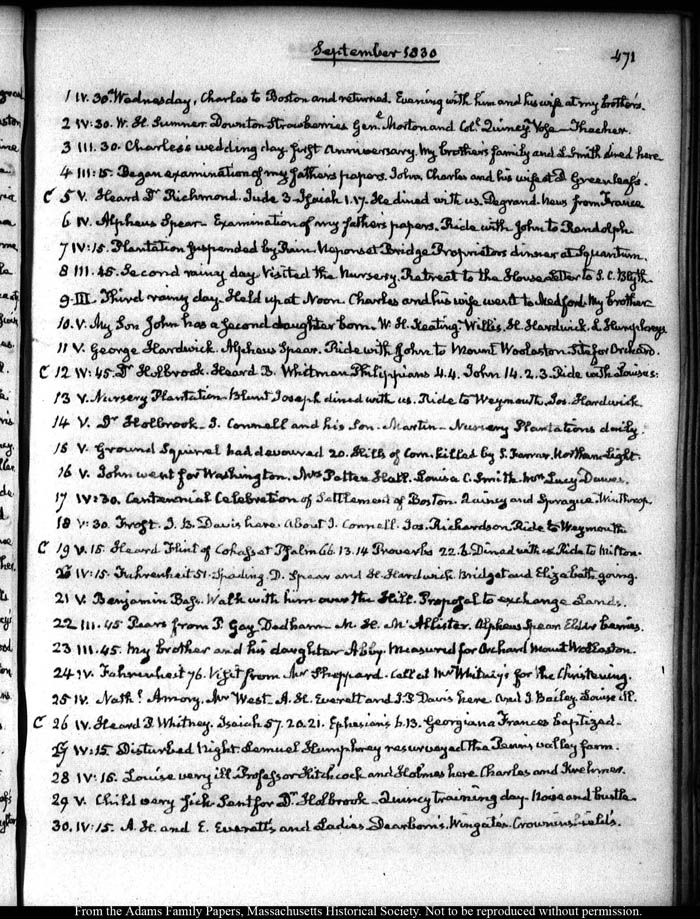 September 1830
471
1 IV. 30. Wednesday, Charles to Boston and returned. Evening with him and his wife at my brother's.
2 IV:30. W. H. Sumner. Downton Strawberries Genl. Morton and Coll. Quincy. Vose Thacher.
3 III. 30. Charles's wedding day. first Anniversary. My brother's family and L Smith dined here
4 III:15. Began examination of my father's papers. John, Charles and his wife at D Greenleaf's.
C 5 V. Heard Dr Richmond. Jude 3. Isaiah 1.17. He dined with us. Degrand. News from France
6 IV. Alpheus Spear. Examination of my father's papers. Ride with John to Randolph
7 IV:15. Plantation suspended by Rain. Neponset Bridge Proprietors dinner at Squantum.
8 III. 45. Second rainy day. Visited the Nursery. Retreat to the House. Letter to S. C. Blyth.
9. III. Third rainy day. Held up at Noon. Charles and his wife went to Medford. My brother
10. V. My Son John has a second daughter born. W. H. Keating. Willis. H. Hardwick. L Humphreys
11 V. George Hardwick. Alpheus Spear. Ride with John to Mount Woolaston. Site for Orchard.
C 12 IV:45. Dr Holbrook. Heard B. Whitman Philippians 4.4. John 14.2.3. Ride with Louisa:
13 V. Nursery Plantation. Blunt Joseph dined with us. Ride to Weymouth. Jos. Hardwick
14 V. Dr Holbrook. J. Connell and his son. Martin. Nursery Plantations daily.
15 V. Ground Squirrel had devoured 20. Hills of Corn. killed by S. Farrar. Northern Light.
16 V. John went for Washington. Mrs Potter Hall. Louisa C. Smith. Mrs Lucy Dawes.
17 IV:30. Centennial Celebration of Settlement of Boston. Quincy and Sprague. Winthrop
18 V:30. Frost. J. B. Davis here. About J. Connell. Jos. Richardson Ride to Weymouth
C 19 V.15. Heard Flint of Cohasset Psalm 66.13.14 Proverbs 22.6. Dined with us Ride to Milton.
20 IV:15. Fahrenheit 51. Spading. D. Spear and H. Hardwick. Bridget and Elizabeth going.
21 V. Benjamin Bass. Walk with him over the Hill. Proposal to exchange Lands.
22 III. 45 Pears from P. Gay Dedham. M. H. McAllister. Alpheus Spear Elder berries.
23 III. 45. My brother and his daughter Abby. Measured for Orchard Mount Wollaston.
24. V. Fahrenheit 76. Visit from Mr Sheppard. Call at Mr Whitney's for the Christening.
25 IV. Nathl. Amory. Mr West. A. H. Everett and J. B Davis here. J. Bailey. Louise ill.
C 26 IV. Heard P. Whitney. Isaiah 57.20.21. Ephesians 6.13. Georgiana Frances baptized
27 IV:15. Disturbed Night. Samuel Humphrey resurveyed the Penns valley farm.
28 IV:15. Louise very ill. Professor Hitchcock and Holmes here. Charles and Kuehner.
29 V. Child very sick. Sent for Dr Holbrook. Quincy training day. Noise and bustle
30. IV:15. A. H. and E. Everett's and Ladies Dearborn's. Wingate's. Crowninshield's.
From the Adams Family Papers, Massachusetts Historical Society. Not to be reproduced without permission.